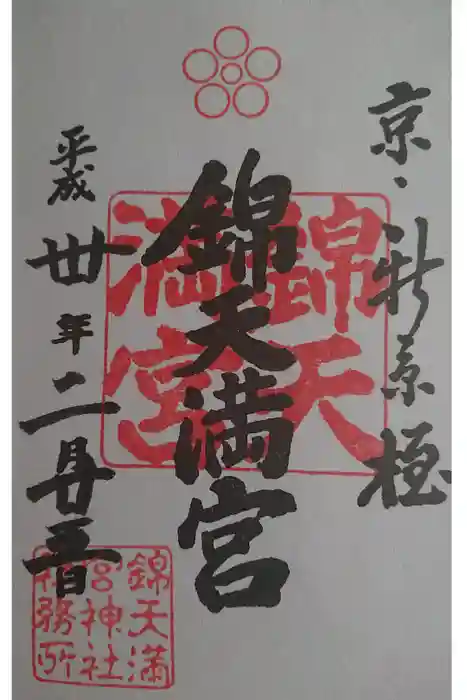 京・新京極
錦天満宮
平成丗年二月廿五日
錦天
満宮
錦天満
宮神社
社務所